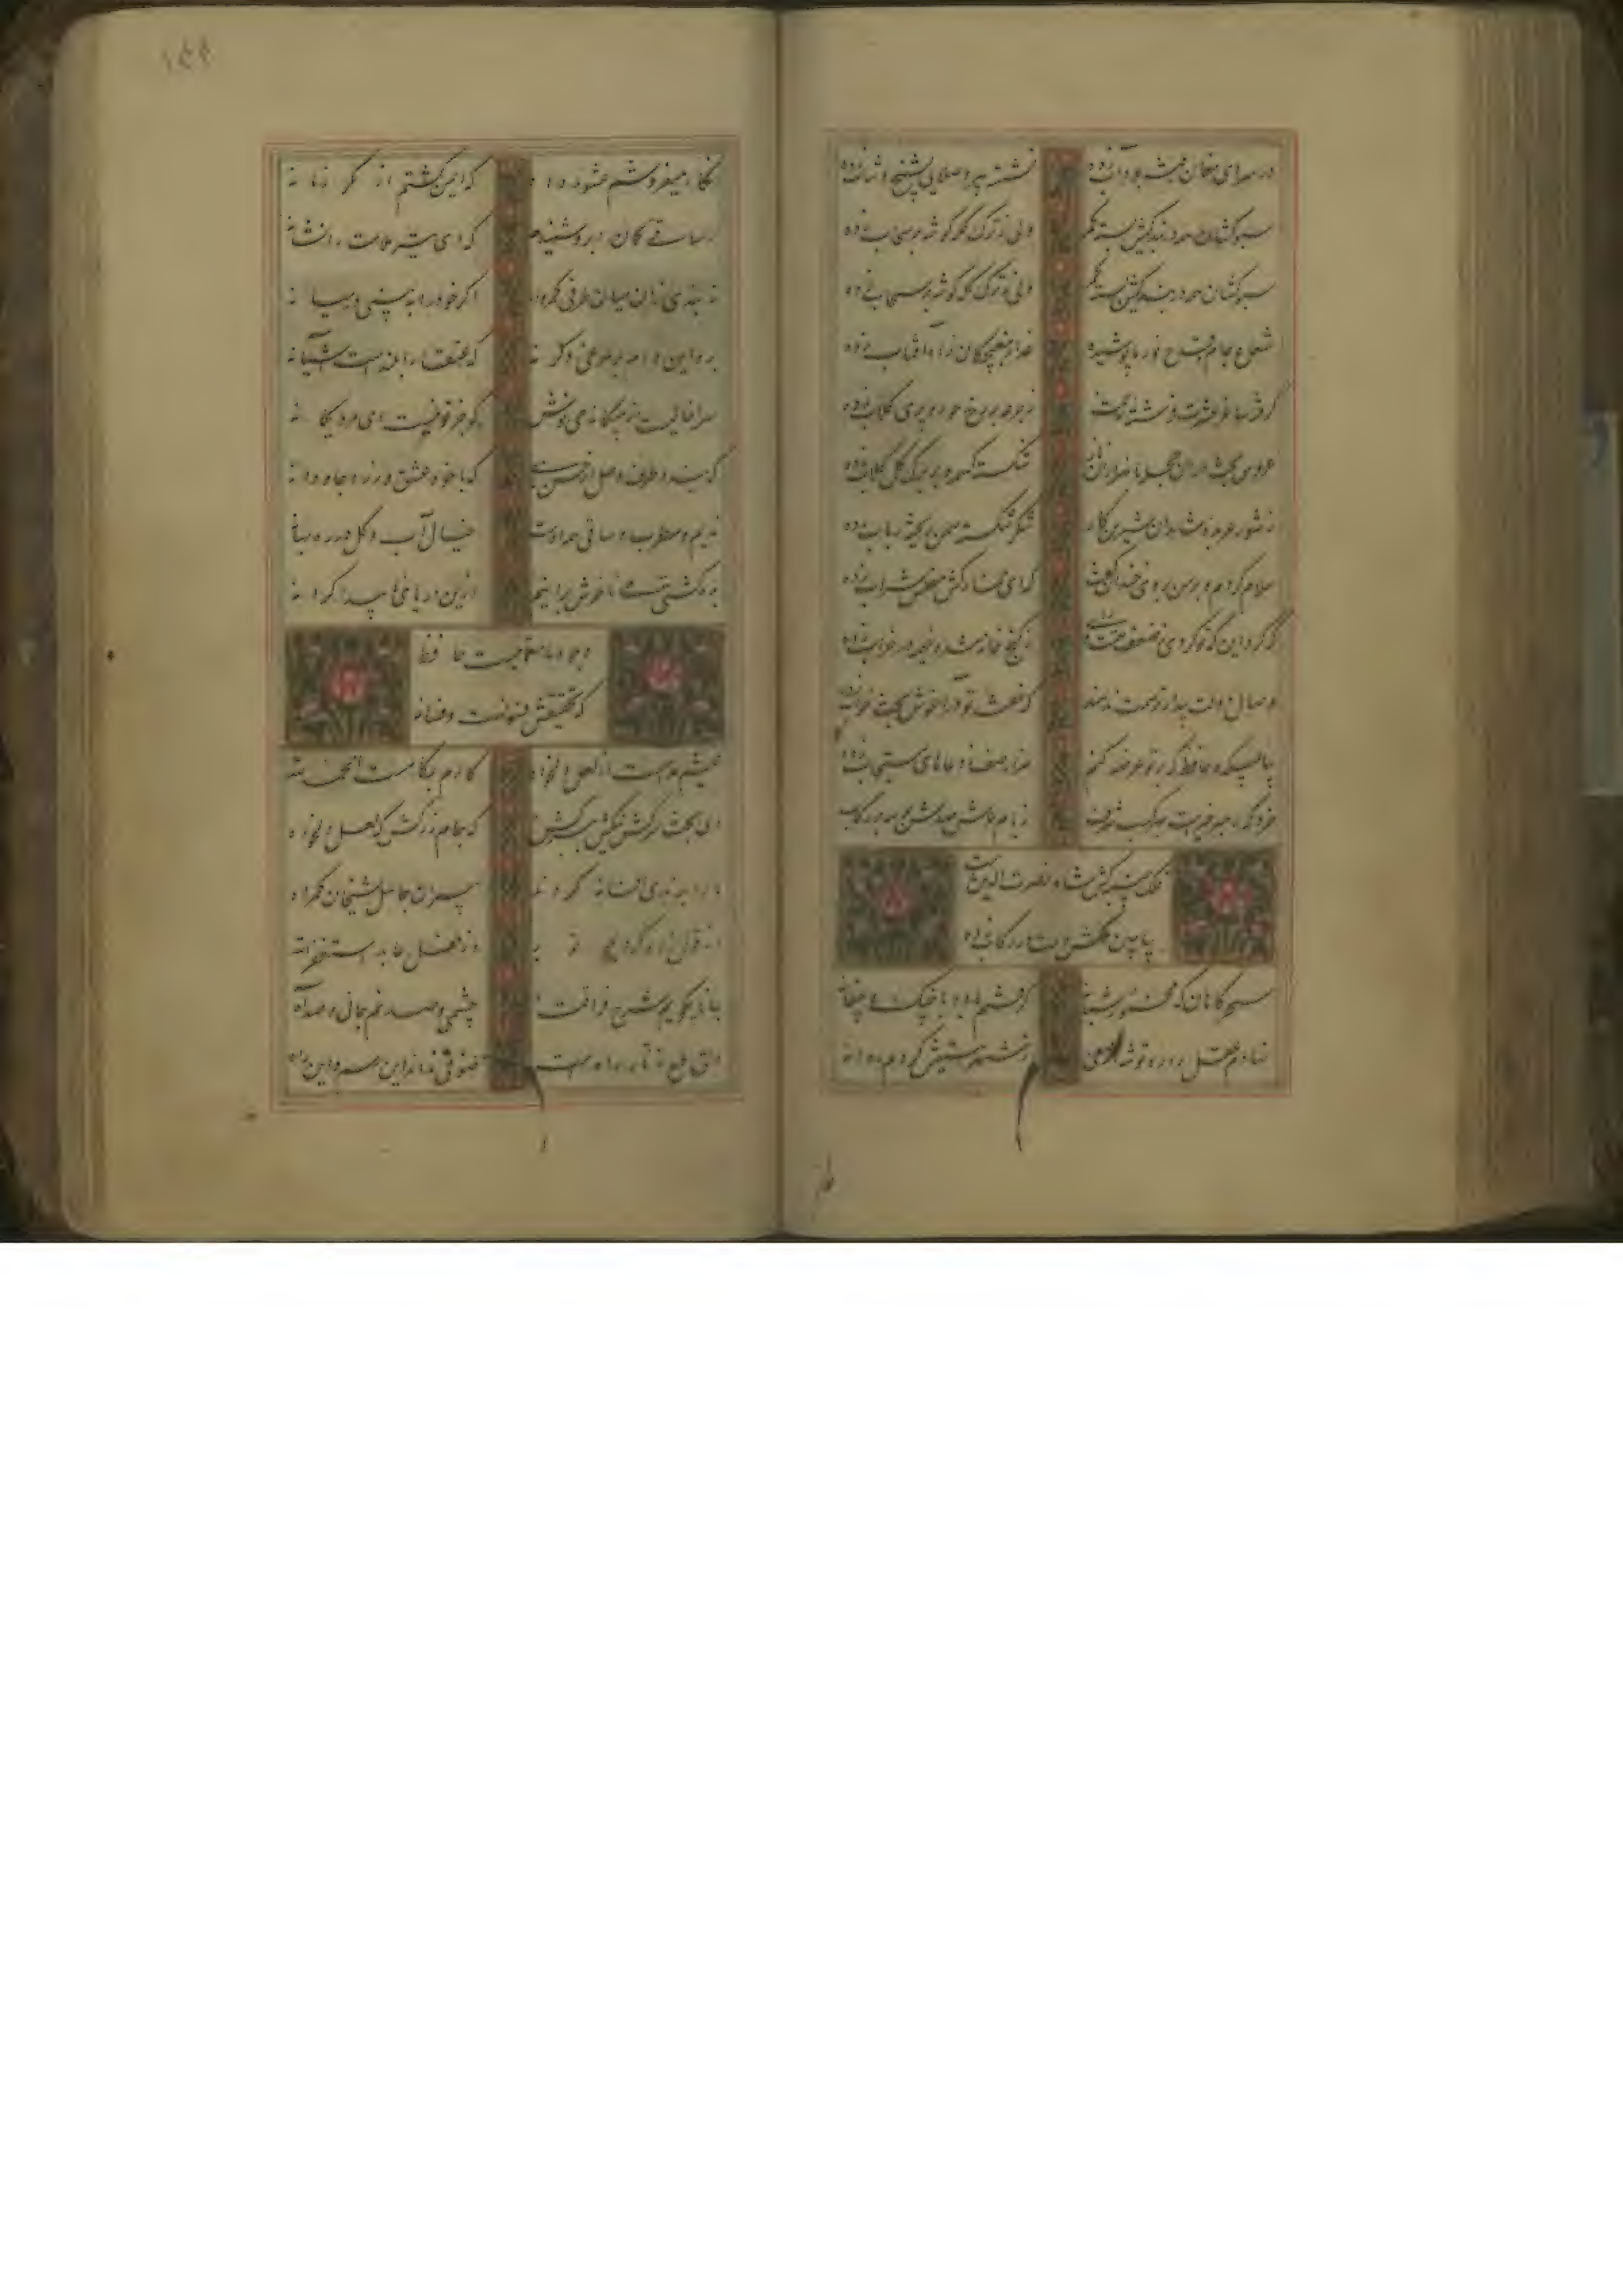 در سرای مغان رفته بود و آب زده
نشسته پیر و صلایی بشیخ و شاب زده
سبوکشان همه در بندگیش بسته کمر
ولی ز ترک کله گوشه بر سحاب زده
سبوکشان همه در بندگیش بسته کمر
ولی ز ترک کله گوشه بر سحاب زده
شعاع جام و قدح نور ماه پوشیده
عذار مغبچگان راه آفتاب زده
گرفته ساغر عشرت فرشته رحمت
ز جرعه بر رخ حور و پری گلاب زده
عروس بخت در آن حجله با هزاران ناز
شکسته کسمه و بر برگ گل گلاب زده
ز شور عربده شاهدان شیرین کار
شکر شکسته سمن ریخته رباب زده
سلام کردم و با من بروی خندان گفت
که ای خمارکش مفلس شراب زده
که کرد این که تو کردی بضعف همت و رای
ز گنج خانه شده خیمه در خراب زده
وصال دولت بیدار ترسمت ندهند
که خفته تو در آغوش بخت خواب زده
بیا بمیکده حافظ که بر تو عرضه کنم
هزار صف ز دعاهای مستجاب زده
خرد که ملهم غیبست بهر کسب شرف
ز بام عرش صدش بوسه بر رکاب زده
فلک جنیبه کش شاه نصرت الدین است
بیا ببین ملکش دست در رکاب زده
سحرگاهان که مخمور شبانه
گرفتم باده با چنگ و چغانه
نهادم عقل را ره توشه از می
ز شهر هستیش کردم روانه
نگار میفروشم عشوه داد
که ایمن گشتم از مکر زمانه
ز ساقی کمان ابرو شنیدم
که ای تیر ملامت را نشانه
نبندی زان میان طرفی کمروار
اگر خود را ببینی در میانه
برو این دام بر مرغی دگر نه
که عنقا را بلندست آشیانه
سرا خالیست از بیگانه می نوش
که جز تو نیست ای مرد یگانه
که بندد طرف وصل از حسن شاهی
که با خود عشق ورزد جاودانه
ندیم و مطرب و ساقی همه اوست
خیال آب و گل در ره بهانه
بده کشتی می تا خوش برانیم
ازین دریای ناپیدا کرانه
وجود ما معمائیست حافظ
که تحقیقش فسونست و فسانه
عیشم مدامست از لعل دلخواه
کارم بکامست الحمد لله
ای بخت سرکش تنگش ببر کش
که جام زر کش که لعل دلخواه
ما را برندی افسانه کردند
پیران جاهل شیخان گمراه
از قول زاهد کردیم توبه
وز فعل عابد استغفرالله
جانا چگویم شرح فراقت
چشمی و صد نم جانی و صد آه